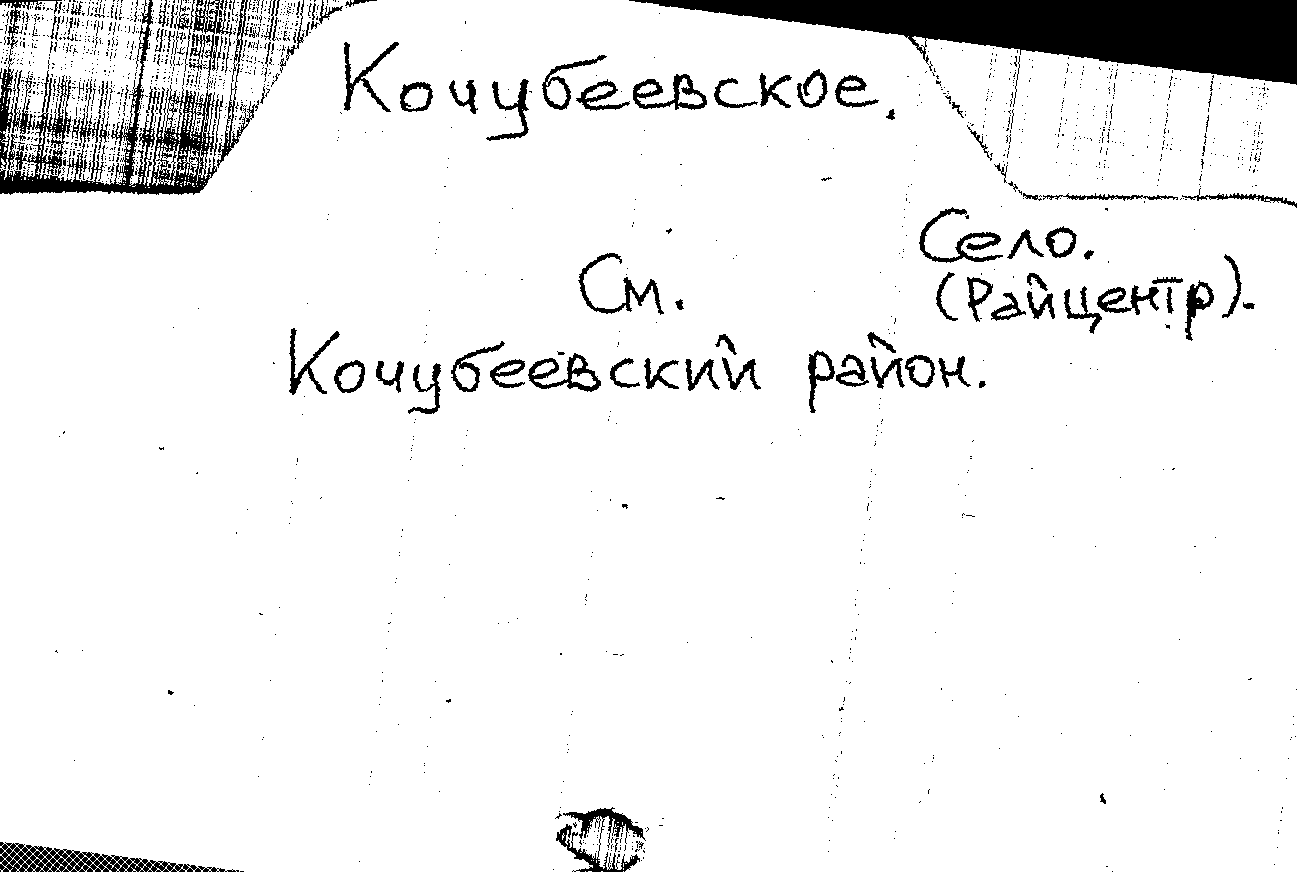 Кочубеевское.
Село.
(Райцентр).
См.
Кочубеевский район.